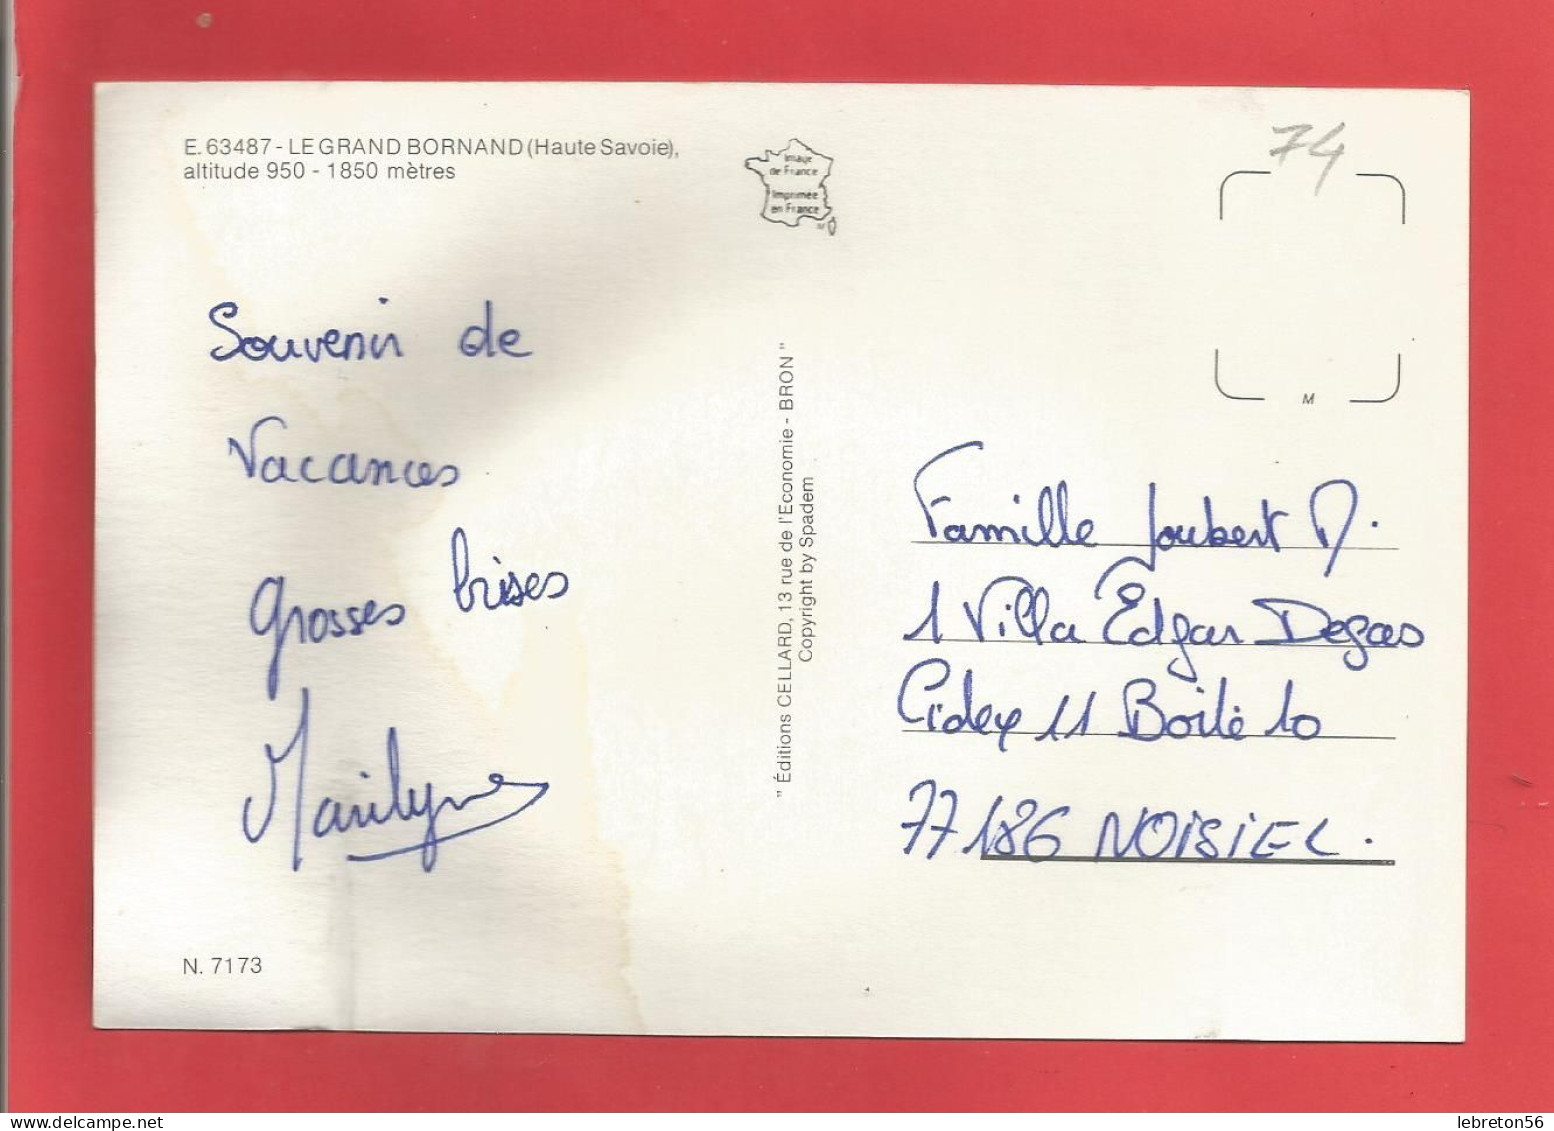 E. 63487 - LE GRAND BORNAND (Haute Savoie),
altitude 950 - 1850 mètres
Image
de France
Imprimée
en France
M
74
M
Souvenir de
Vacances
grosses bises
Marilyne
N. 7173
" Éditions CELLARD, 13 rue de l'Economie - BRON "
Copyright by Spadem
Famille Joubert D.
1 Villa Edgar Degas
Cidex 11 Boite 10
77186 NOISIEL.
lebreton56